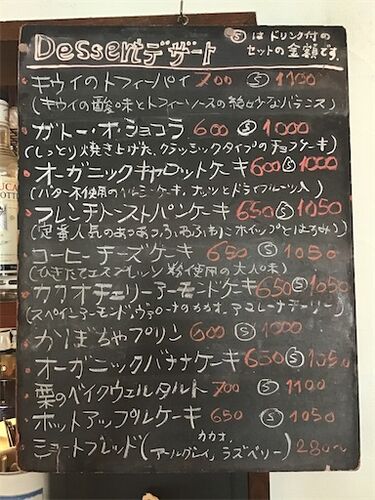 Dessertデザート
Ⓢは ドリンク付の
セットの金額です。
キウイのトフィーパイ 700 Ⓢ 1100
(キウイの酸味とトフィーソースの絶妙なバランス)
ガトー・オ・ショコラ 600 Ⓢ 1000
(しっとり焼き上げた、クラッシックタイプのチョコケーキ)
オーガニックキャロットケーキ 600 Ⓢ 1000
(バター不使用のヘルシーケーキ。ナッツとドライフルーツ入)
フレンチトーストパンケーキ 650 Ⓢ 1050
(定番人気のあつあつふわふわにホイップとはちみつ)
コーヒーチーズケーキ 650 Ⓢ 1050
(ひきたてエスプレッソ粉使用の大人味)
カカオチェリーアーモンドケーキ 650 Ⓢ 1050
(スペインアーモンド、ヴァローナのカカオ、アマレーナチェリー)
かぼちゃプリン 600 Ⓢ 1000
オーガニックバナナケーキ 650 Ⓢ 1050
栗のベイクウェルタルト 700 Ⓢ 1100
ホットアップルケーキ 650 Ⓢ 1050
ショートブレッド(カカオ、アールグレイ、ラズベリー) 280~